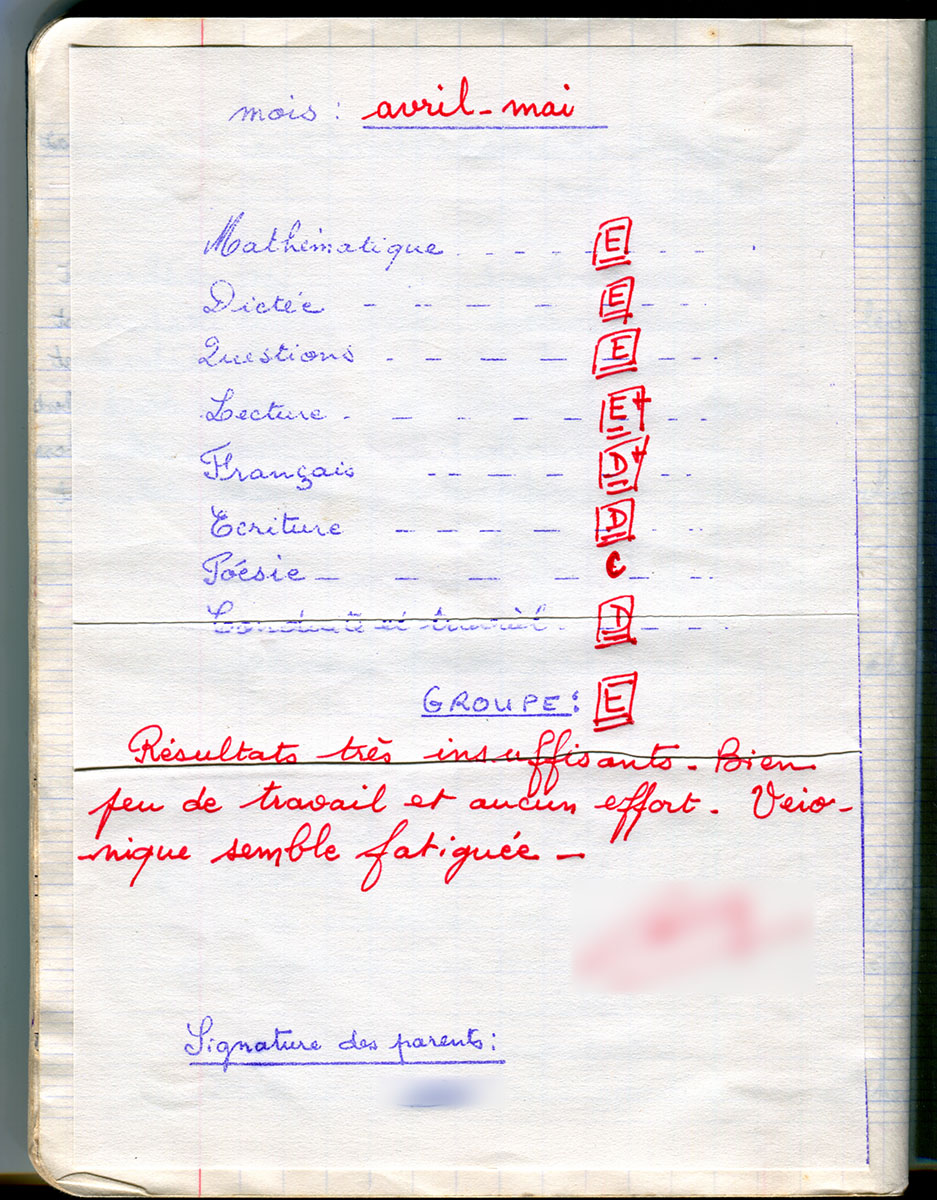 mois : avril - mai
Mathématique E
Dictée E
Questions E
Lecture E+
Français D+
Ecriture D
Poésie C
Conduite et travail D
GROUPE : E
Résultats très insuffisants. Bien
peu de travail et aucun effort. Véro-
nique semble fatiguée -
Signature des parents :